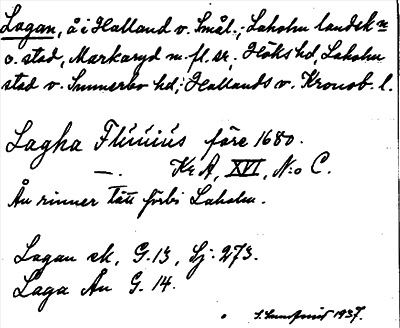 Lagan, å i Halland o. Smål.; Laholm landsk n
o. stad, Markaryd m. fl. sr., Höks hd, Laholm
stad o. Sunnerbo hd; Hallands o. Kronob. l.
Lagha Flüüiüs före 1680.
—. Kr A, XVI, N:o C.
Ån rinner tätt förbi Laholm.
Lagan sk, G. 13, Sj. 273.
Laga Ån G. 14.
S. Lundqvist 1937.